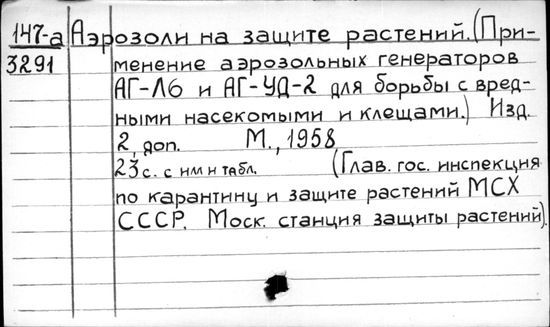 147-а Аэрозоли на защите растений. (При-
3291 менение аэрозольных генераторов
АГ-Л6 и АГ-УД-2 для борьбы с вред-
ными насекомыми и клещами.) Изд.
2, доп. М., 1958
23с. с им и табл. (Глав. гос. инспекция
по карантину и защите растений МСХ
СССР. Моск. станция защиты растений).